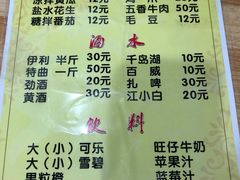 凉拌黄瓜 12元
盐水花生 12元 五香牛肉 50元
糖拌番茄 12元 毛豆 12元
酒水
伊利 半斤 30元 千岛湖 10元
特曲 一斤 50元 百威 10元
劲酒 20元 扎啤 30元
黄酒 30元 江小白 20元
饮料
大（小）可乐 旺仔牛奶
大（小）雪碧 苹果汁
果粒橙 蓝莓汁